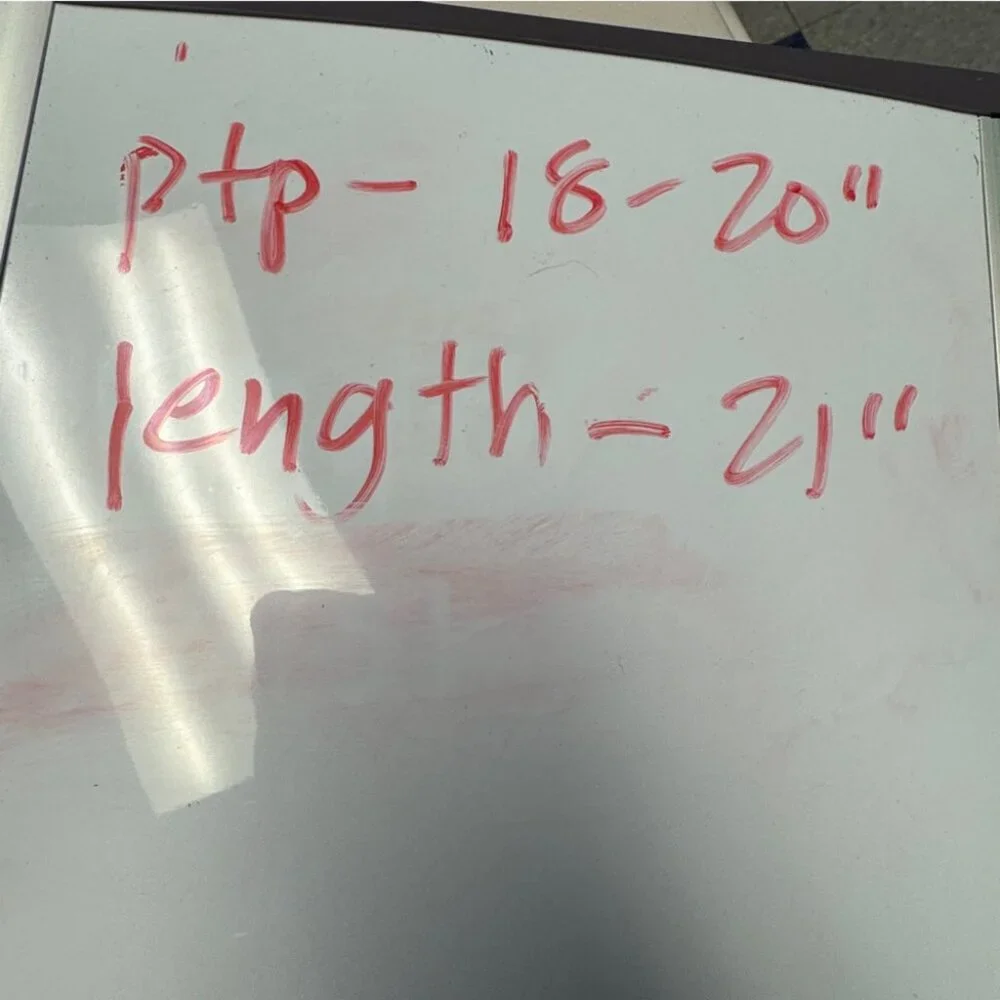 ptp - 18 - 20"
length - 21"